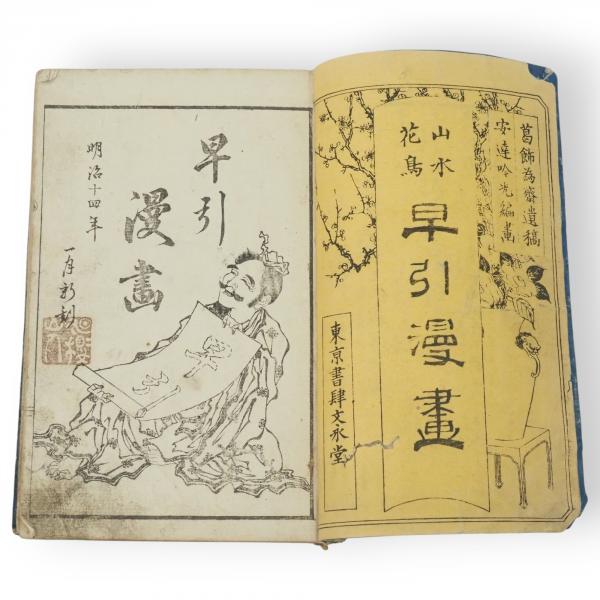 葛飾為斎遺稿
安達吟光編畫
山水
花鳥
早引漫畫
東京書肆文永堂
早引
漫畫
明治十四年
一月新刻
早引